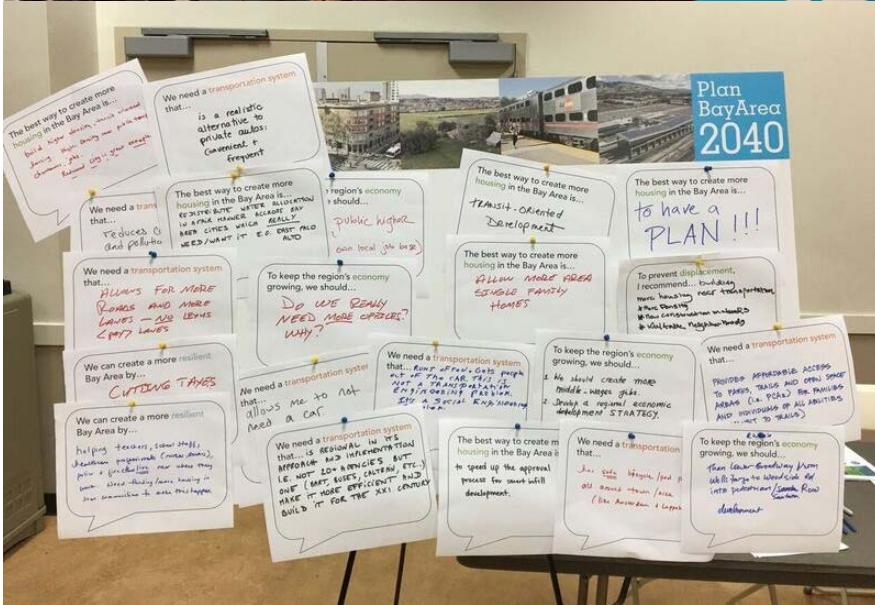 Plan
BayArea
2040
The best way to create more
housing in the Bay Area is...
build higher density, transit oriented
housing. Higher density near public transit,
downtowns, jobs.
Redwood City is great example.
We need a transportation system
that...
is a realistic
alternative to
private autos:
Convenient +
frequent
We need a trans
that...
reduces
and pollutio
The best way to create more
housing in the Bay Area is...
REDISTRIBUTE WATER ALLOCATION
IN A FAIR MANNER ACCROSS BAY
AREA CITIES WHICH REALLY
NEED/WANT IT E.G. EAST PALO
ALTO
region's economy
should...
public higher
own local job base)
The best way to create more
housing in the Bay Area is...
TRANSIT-ORIENTED
Development
The best way to create more
housing in the Bay Area is...
to have a
PLAN!!!
We need a transportation system
that...
ALLOWS FOR MORE
ROADS AND MORE
LANES - NO LEXUS
(PAY) LANES
To keep the region's economy
growing, we should...
DO WE REALLY
NEED MORE OFFICES?
WHY?
The best way to create more
housing in the Bay Area is...
ALLOW MORE AREA
SINGLE FAMILY
HOMES
To prevent displacement,
I recommend... building
more housing near transportation
# More Density
# New construction
# Walkable Neighborhoods
We can create a more resilient
Bay Area by...
CUTTING TAXES
We need a transportation system
that...
allows me to not
need a car.
We need a transportation system
that... RUNS OFTEN. Gets people
OUT OF THE CAR. THIS IS
NOT A TRANSPORTATION
ENGINEERING PROBLEM.
It's a SOCIAL ENGINEERING
To keep the region's economy
growing, we should...
1 We should create more
middle-wages jobs.
2 Develop a regional economic
development STRATEGY.
We need a transportation system
that...
PROVIDES AFFORDABLE ACCESS
TO PARKS, TRAILS AND OPEN SPACE
AREAS (I.E. PCAs) FOR FAMILIES
AND INDIVIDUALS OF ALL ABILITIES
TO TRAILS)
We can create a more resilient
Bay Area by...
helping teachers, school staff,
healthcare professionals
police & firefighters near where they
work. Need funding/more housing in
communities to make this happen
We need a transportation system
that... IS REGIONAL IN ITS
APPROACH AND IMPLEMENTATION
I.E. NOT 20+ AGENCIES BUT
ONE (BART, BUSES, CALTRAN, ETC..)
MAKE IT MORE EFFICIENT AND
BUILD IT FOR THE XXI CENTURY
The best way to create m
housing in the Bay Area i
to speed up the approval
process for smart infill
development.
We need a transportation
that...
has safe bicycle/ped
all around town/area
(like Amsterdam &
To keep the region's economy
growing, we should...
Lower Broadway from
Wells Fargo to Woodside Rd
into pedestrian/ Santana Row
development